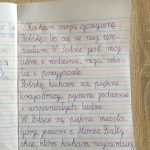 Kocham moją ojczyznę
Polskę, bo się w niej uro-
dziłam. W Polsce jest mój
dom i rodzina, moja szko-
ła i przyjaciele.
Polskę kocham za piękne
krajobrazy, pyszne jedzenie
i wspaniałych ludzi.
W Polsce są piękne miasta,
góry, jeziora i Morze Bałty-
ckie, które kocham najbardziej